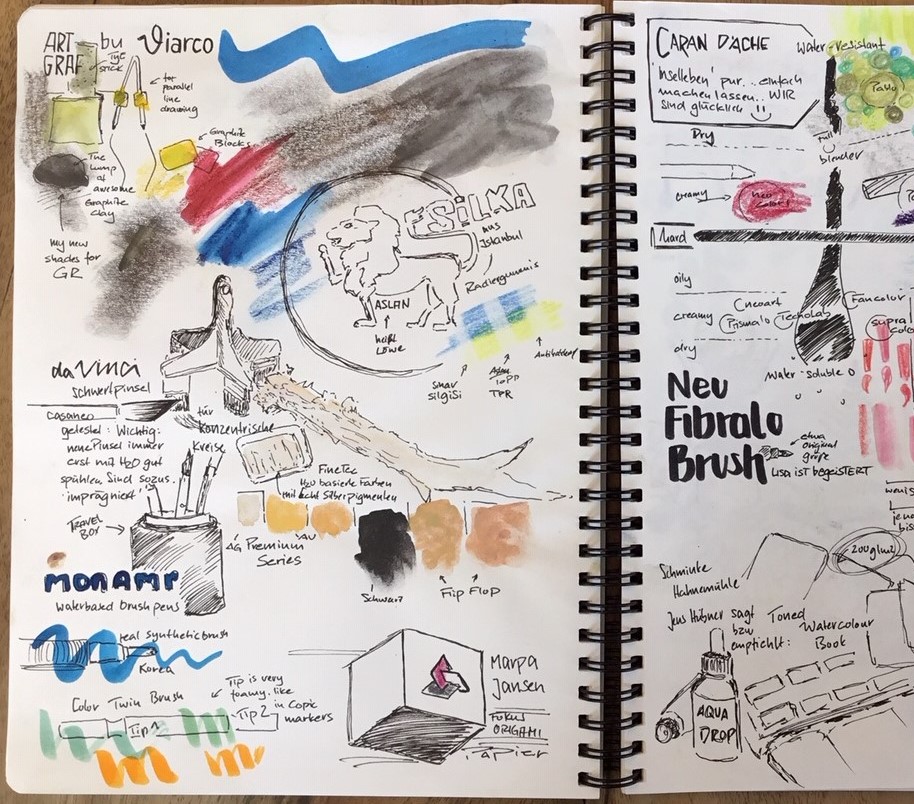 ART
GRAF
by
Viarco
Type
stick
for
parallel
line
drawing
Graphite
Blocks
The
lump
of
awesome
Graphite
Clay
my new
shades for
GR
SiLKA
aus
Istanbul
Radiergummis
ASLAN
heißt
Löwe
Smar
silgisi
TOPP
TPR
da Vinci
Schwertpinsel
casaneo
getestet: Wichtig:
neue Pinsel immer
erst mit H2O gut
spühlen. Sind sozus.
'imprägniert'
für
konzentrische
Kreise
FineTec
H2O basierte Farben
mit echt Silberpigmenten
TRAVEL
BOX
AG Premium
Series
AU
Schwarz
Flip Flop
MONAMI
waterbased brush pens
real synthetic brush
Korea
Color Twin Brush
Tip 1
Tip 2
Tip is very
foamy. like
in Copic
markers
Marpa
Jansen
FOKUS
ORIGAMI
Papier
CARAN D'ACHE
'Inselleben' pur... einfach
machen lassen.. WIR
sind glücklich
Water-resistant
Pablo
Dry
full
blender
creamy
Neo
hard
oily
creamy
Prismalo
Tecnolab
Fancolor
supra
dry
Water-soluble
Neu
Fibralo
Brush
etwa
original
größe
LISA IST BEGEISTERT
200g/m2
Schminke
Hahnemühle
Jens Hübner sagt
bzw
empfiehlt:
Toned
Watercolour
Book
AQUA
DROP